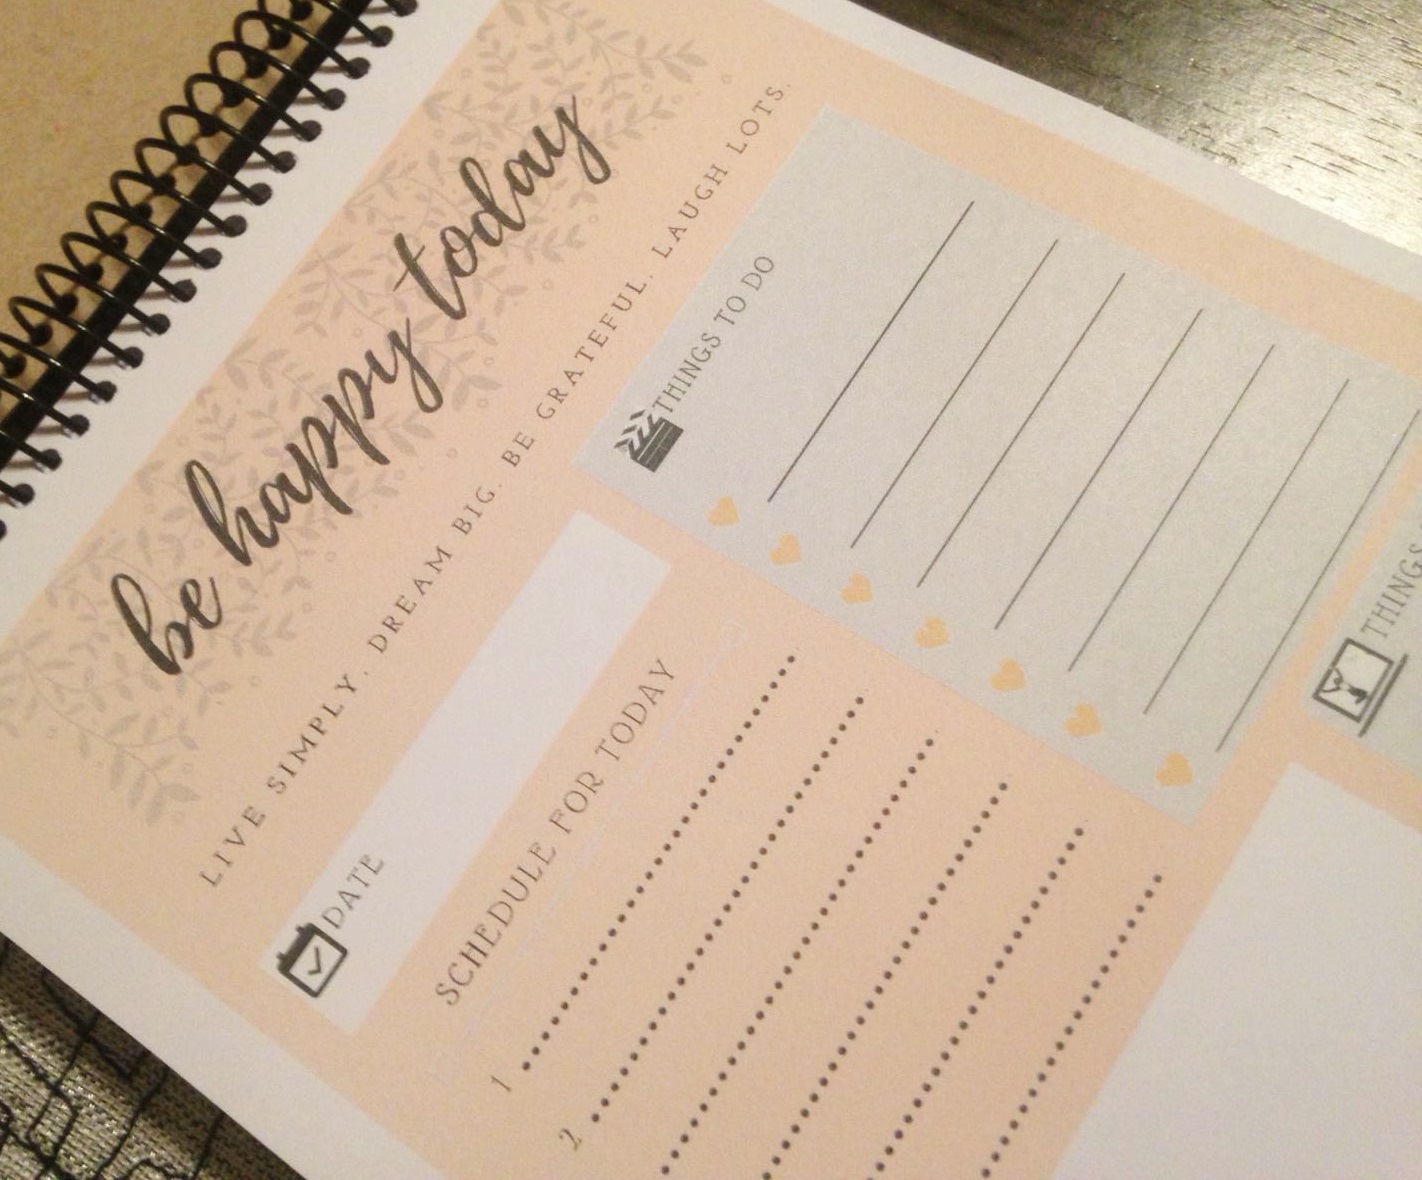 be happy today
LIVE SIMPLY. DREAM BIG. BE GRATEFUL. LAUGH LOTS.
DATE
THINGS TO DO
SCHEDULE FOR TODAY
1
2
THINGS